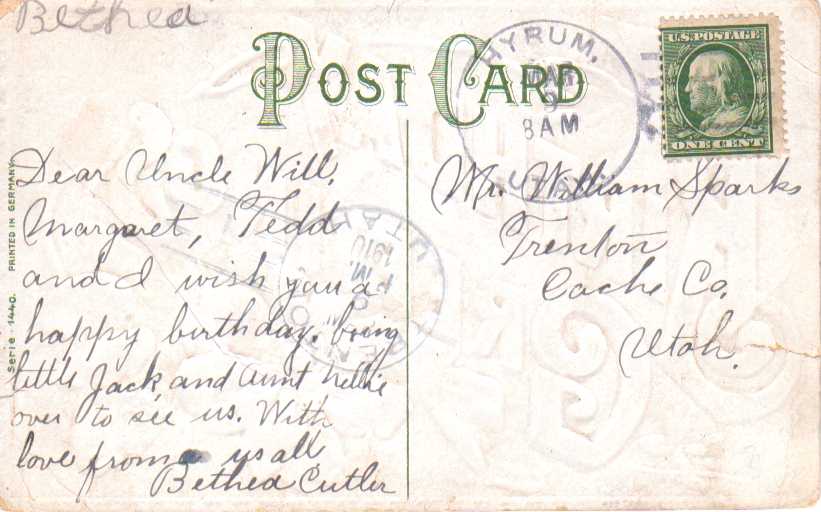 Bethea
POST CARD
HYRUM,
MAR
9
8 AM
UTAH
U.S. POSTAGE
ONE CENT
Dear Uncle Will,
Margaret, Tedd
and I wish you a
happy birthday. bring
little Jack, and aunt Nellie
over to see us. With
love from us all
Bethea Cutler
Mr. William Sparks
Trenton
Cache Co.
Utah.
TRENTON
UTAH
1910
Serie - 1440. PRINTED IN GERMANY